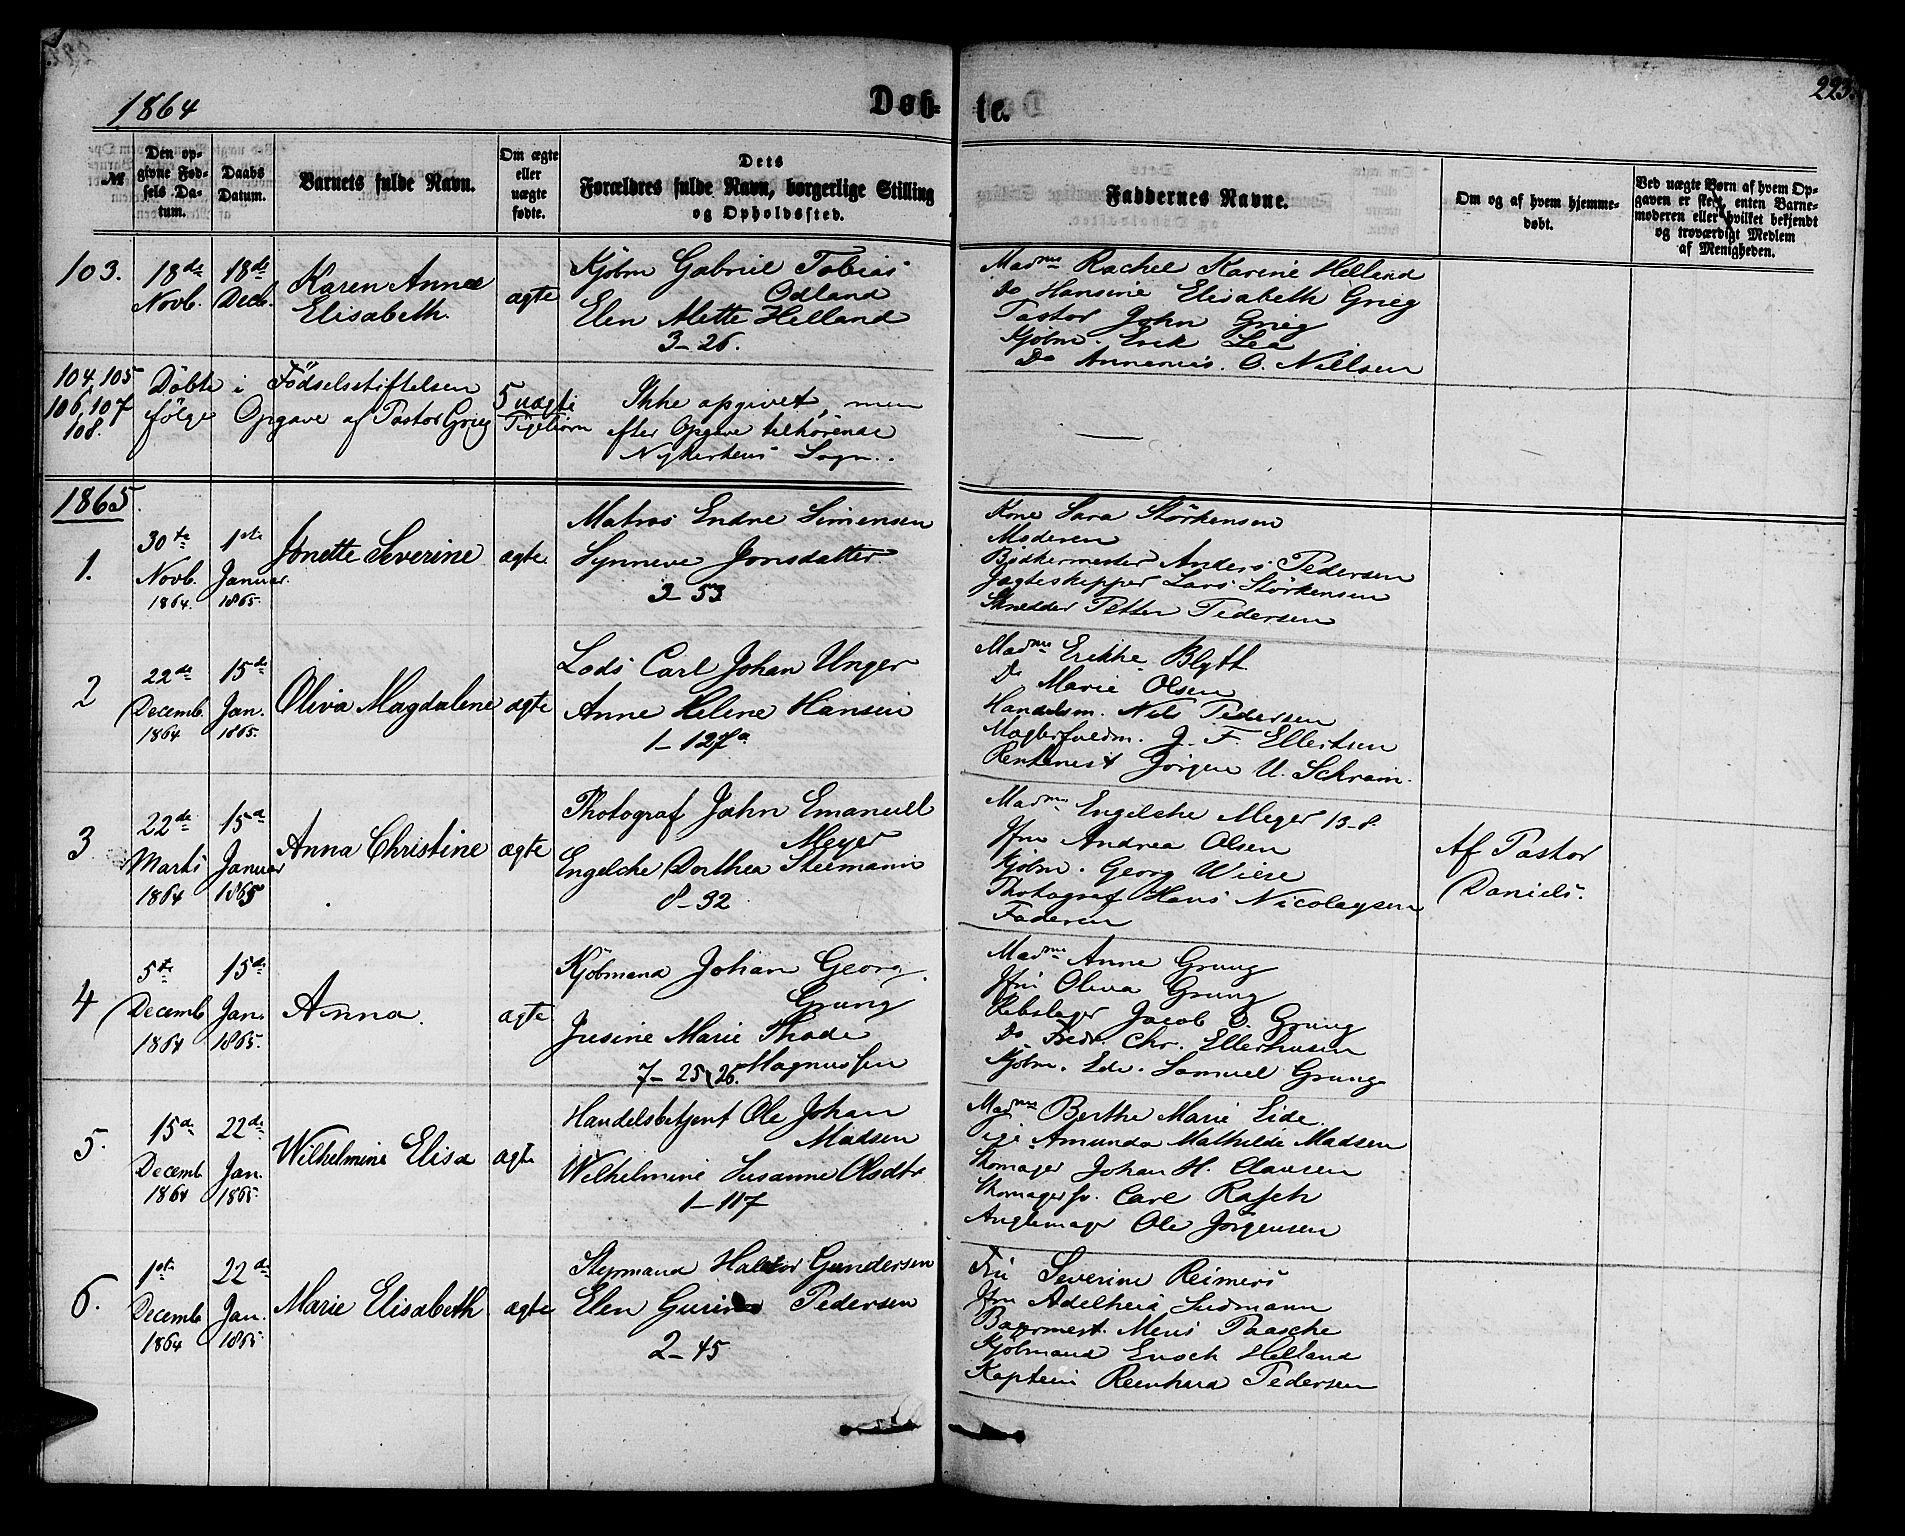 1864
Døb-
te.
223.
№
Den op-
givne Fød-
sels Da-
tum.
Daabs
Datum.
Barnets fulde Navn.
Om ægte
eller
uægte
fødte.
Dets
Forældres fulde Navn, borgerlige Stilling
og Opholdssted.
Faddernes Navne.
Om og af hvem hjemme-
døbt.
Ved uægte Børn af hvem Op-
gaven er skeet, enten Barne-
moderen eller hvilket bekjendt
og troværdigt Medlem
af Menigheden.
103.
18de
Novb.
18de
Decb.
Karen Anna
Elisabeth.
ægte
Kjøbm Gabriel Tobias
Odland
Elen Mette Helland
3-26.
Madme Rachel Karine Helland
Do Hansine Elisabeth Grieg
Pastor John Grieg
Kjøbm. Erik Lea
Do Annanias O. Nielsen
104, 105
106, 107
108.
Døbte i Fødselsstiftelsen
følge Opgave af Pastor Grieg
5 uægte
Pigebørn
Ikke opgivet, men
efter Opgave tilhørende
Nykirkens Sogn.
1865
1.
30te
Novb.
1864.
1ste
Januar.
1865.
Jonette Severine
ægte
Matros Endre Simensen
Synneve Jonsdatter
3-53
Kone Sara Størkensen
Moderen
Bødkermester Anders Pedersen
Jagteskipper Lars Størkensen
Skredder Petter Pedersen
2
22de
Decemb.
1864
15de
Jan.
1865.
Oliva Magdalene
ægte
Lods Carl Johan Unger
Anne Helene Hansen
1-127a
Madme Erikke Blytt
Do Marie Olsen
Handelsm. Nils Pedersen
Mæglerfuldm. J. F. Ellertsen
Rentenist Jørgen U. Schram.
3
22de
Marts
1864
15de
Januar
1865
Anna Christine
ægte
Photograf John Emanuel
Meyer
Engelche Dorthea Steimann
8-32
Madme Engelche Meyer 13-8.
Jfru Andrea Olsen
Kjøbm. Georg Wiese
Photograf Hans Nicolaysen
Faderen
Af Pastor
Daniels.
4
5te
Decemb
1864
15de
Jan.
1865.
Anna.
ægte
Kjøbmand Johan Georg
Grung
Jusine Marie Thode
Magnussen
7-25/26.
Madme Anne Grung
Jfru Oliva Grung
Rebslager Jacob D. Grung
Do Fredr. Chr. Ellerhusen
Kjøbm. Edv. Samuel Grung
5.
15de
Decemb
1864
22de
Jan.
1865.
Wilhelmine Elisa
ægte
Handelsbetjent Ole Johan
Madsen
Wilhelmine Susanne Olsdtr
1-117
Madme Berthe Marie Eide.
Pige Amunda Mathilde Madsen
Skomager Johan H. Clausen
Skomagersv. Carl Rasch
Anglemager Ole Jørgensen
6.
1ste
Decemb
1864
22de
Jan.
1865.
Marie Elisabeth
ægte
Styrmand Haldor Gundersen
Elen Gurine Pedersen
2-45
Fru Severine Reimers
Jfru Adelheid Sudmann
Bagermest. Mens Paasche
Kjøbmand Enoch Helland
Kaptein Reinhard Pedersen